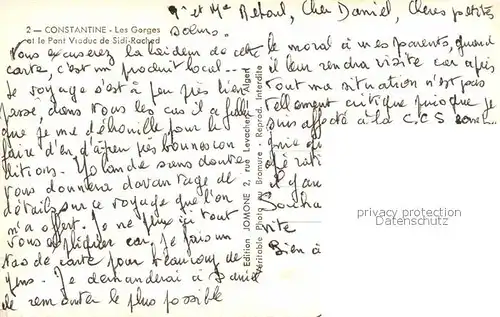 2 — CONSTANTINE - Les Gorges
et le Pont Viaduc de Sidi-Rached
Mr et Mme Reboul, Cher Daniel, Chères petites
Vous excuserez la laideur de cette
carte, c'est un produit local --
Le voyage s'est à peu près bien
passé, dans tous les cas il a fallu
que je me débrouille pour le
faire d'en
ditions. Yolande sans doute
vous donnera davantage de
détails sur ce voyage que l'on
m'a offert. Je ne peux ici tout
vous expliquer car je fais un
tas de carte pour beaucoup de
gens. Je demanderai à Daniel
de remonter le plus possible
le moral à mes parents, quand
il leur rendra visite car après
tout ma situation n'est pas
tellement critique puisque je
suis affecté à la C.C S
il y au
vite
Bien à
Edition JOMONE 2, rue Levacher - Alger
Véritable Photo au Bromure - Reprod. Interdite
privacy protection
Datenschutz